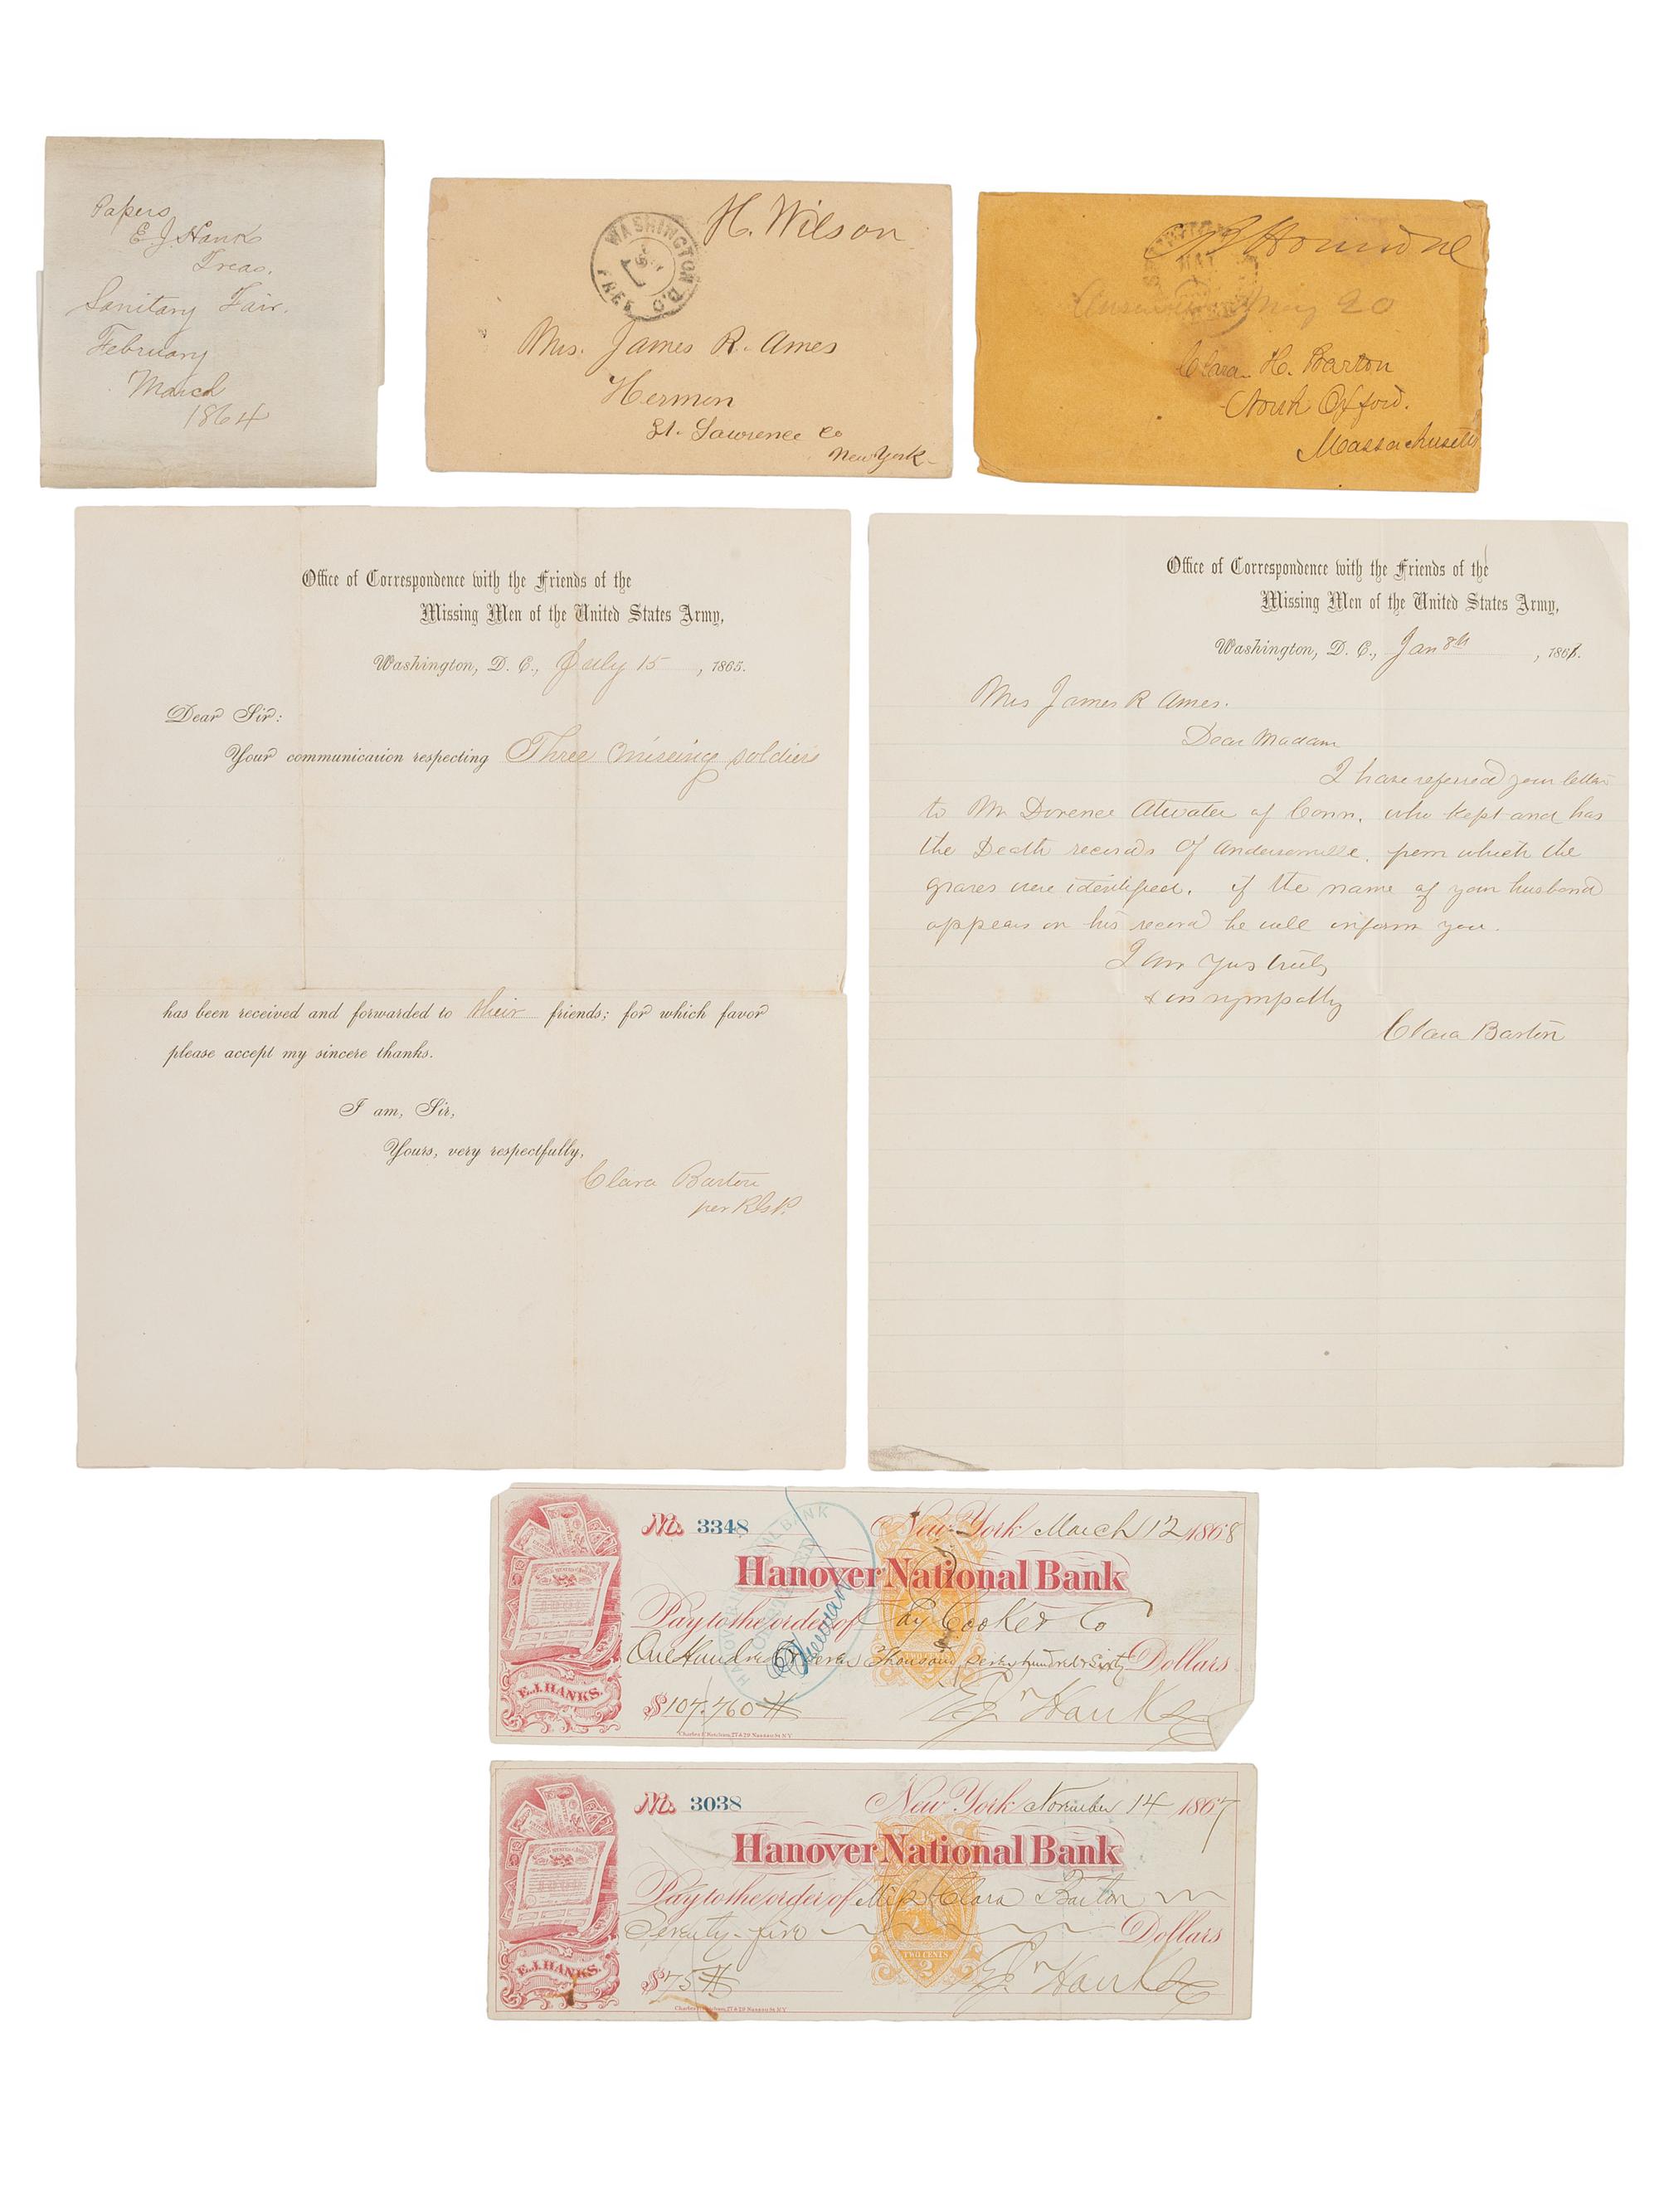 Papers
E J. Hanks
Treas.
Sanitary Fair.
February
March
1864
H. Wilson
WASHINGTON D.C.
FREE
Mrs. James R. Ames
Hermon
St. Lawrence Co
New York
May 20
Clara H. Barton
North Oxford.
Massachusetts
Office of Correspondence with the Friends of the
Missing Men of the United States Army,
Washington, D. C., July 15, 1865.
Dear Sir:
Your communication respecting Three missing soldiers
has been received and forwarded to their friends; for which favor
please accept my sincere thanks.
I am, Sir,
Yours, very respectfully,
Clara Barton
per
Office of Correspondence with the Friends of the
Missing Men of the United States Army,
Washington, D. C., Jan 8th, 186
Mrs James R Ames.
Dear Madam
I have referred your letter
to Mr Dorence Atwater of Conn. who kept and has
the Death records of Andersonville, from which the
graves were identified. if the name of your husband
appears on his record he will inform you.
I am yrs truly
& in sympathy
Clara Barton
No. 3348 New York March 12 1868
Hanover National Bank
Pay to the order of Jay Cooke & Co
One Hundred Seven Thousand Seven hundred & Sixty Dollars
E.J. HANKS.
$107.760 E J Hanks
No. 3038 New York November 14 1867
Hanover National Bank
Pay to the order of Miss Clara Barton
Seventy-five Dollars
TWO CENTS
2
E.J. HANKS.
$75 E J Hanks